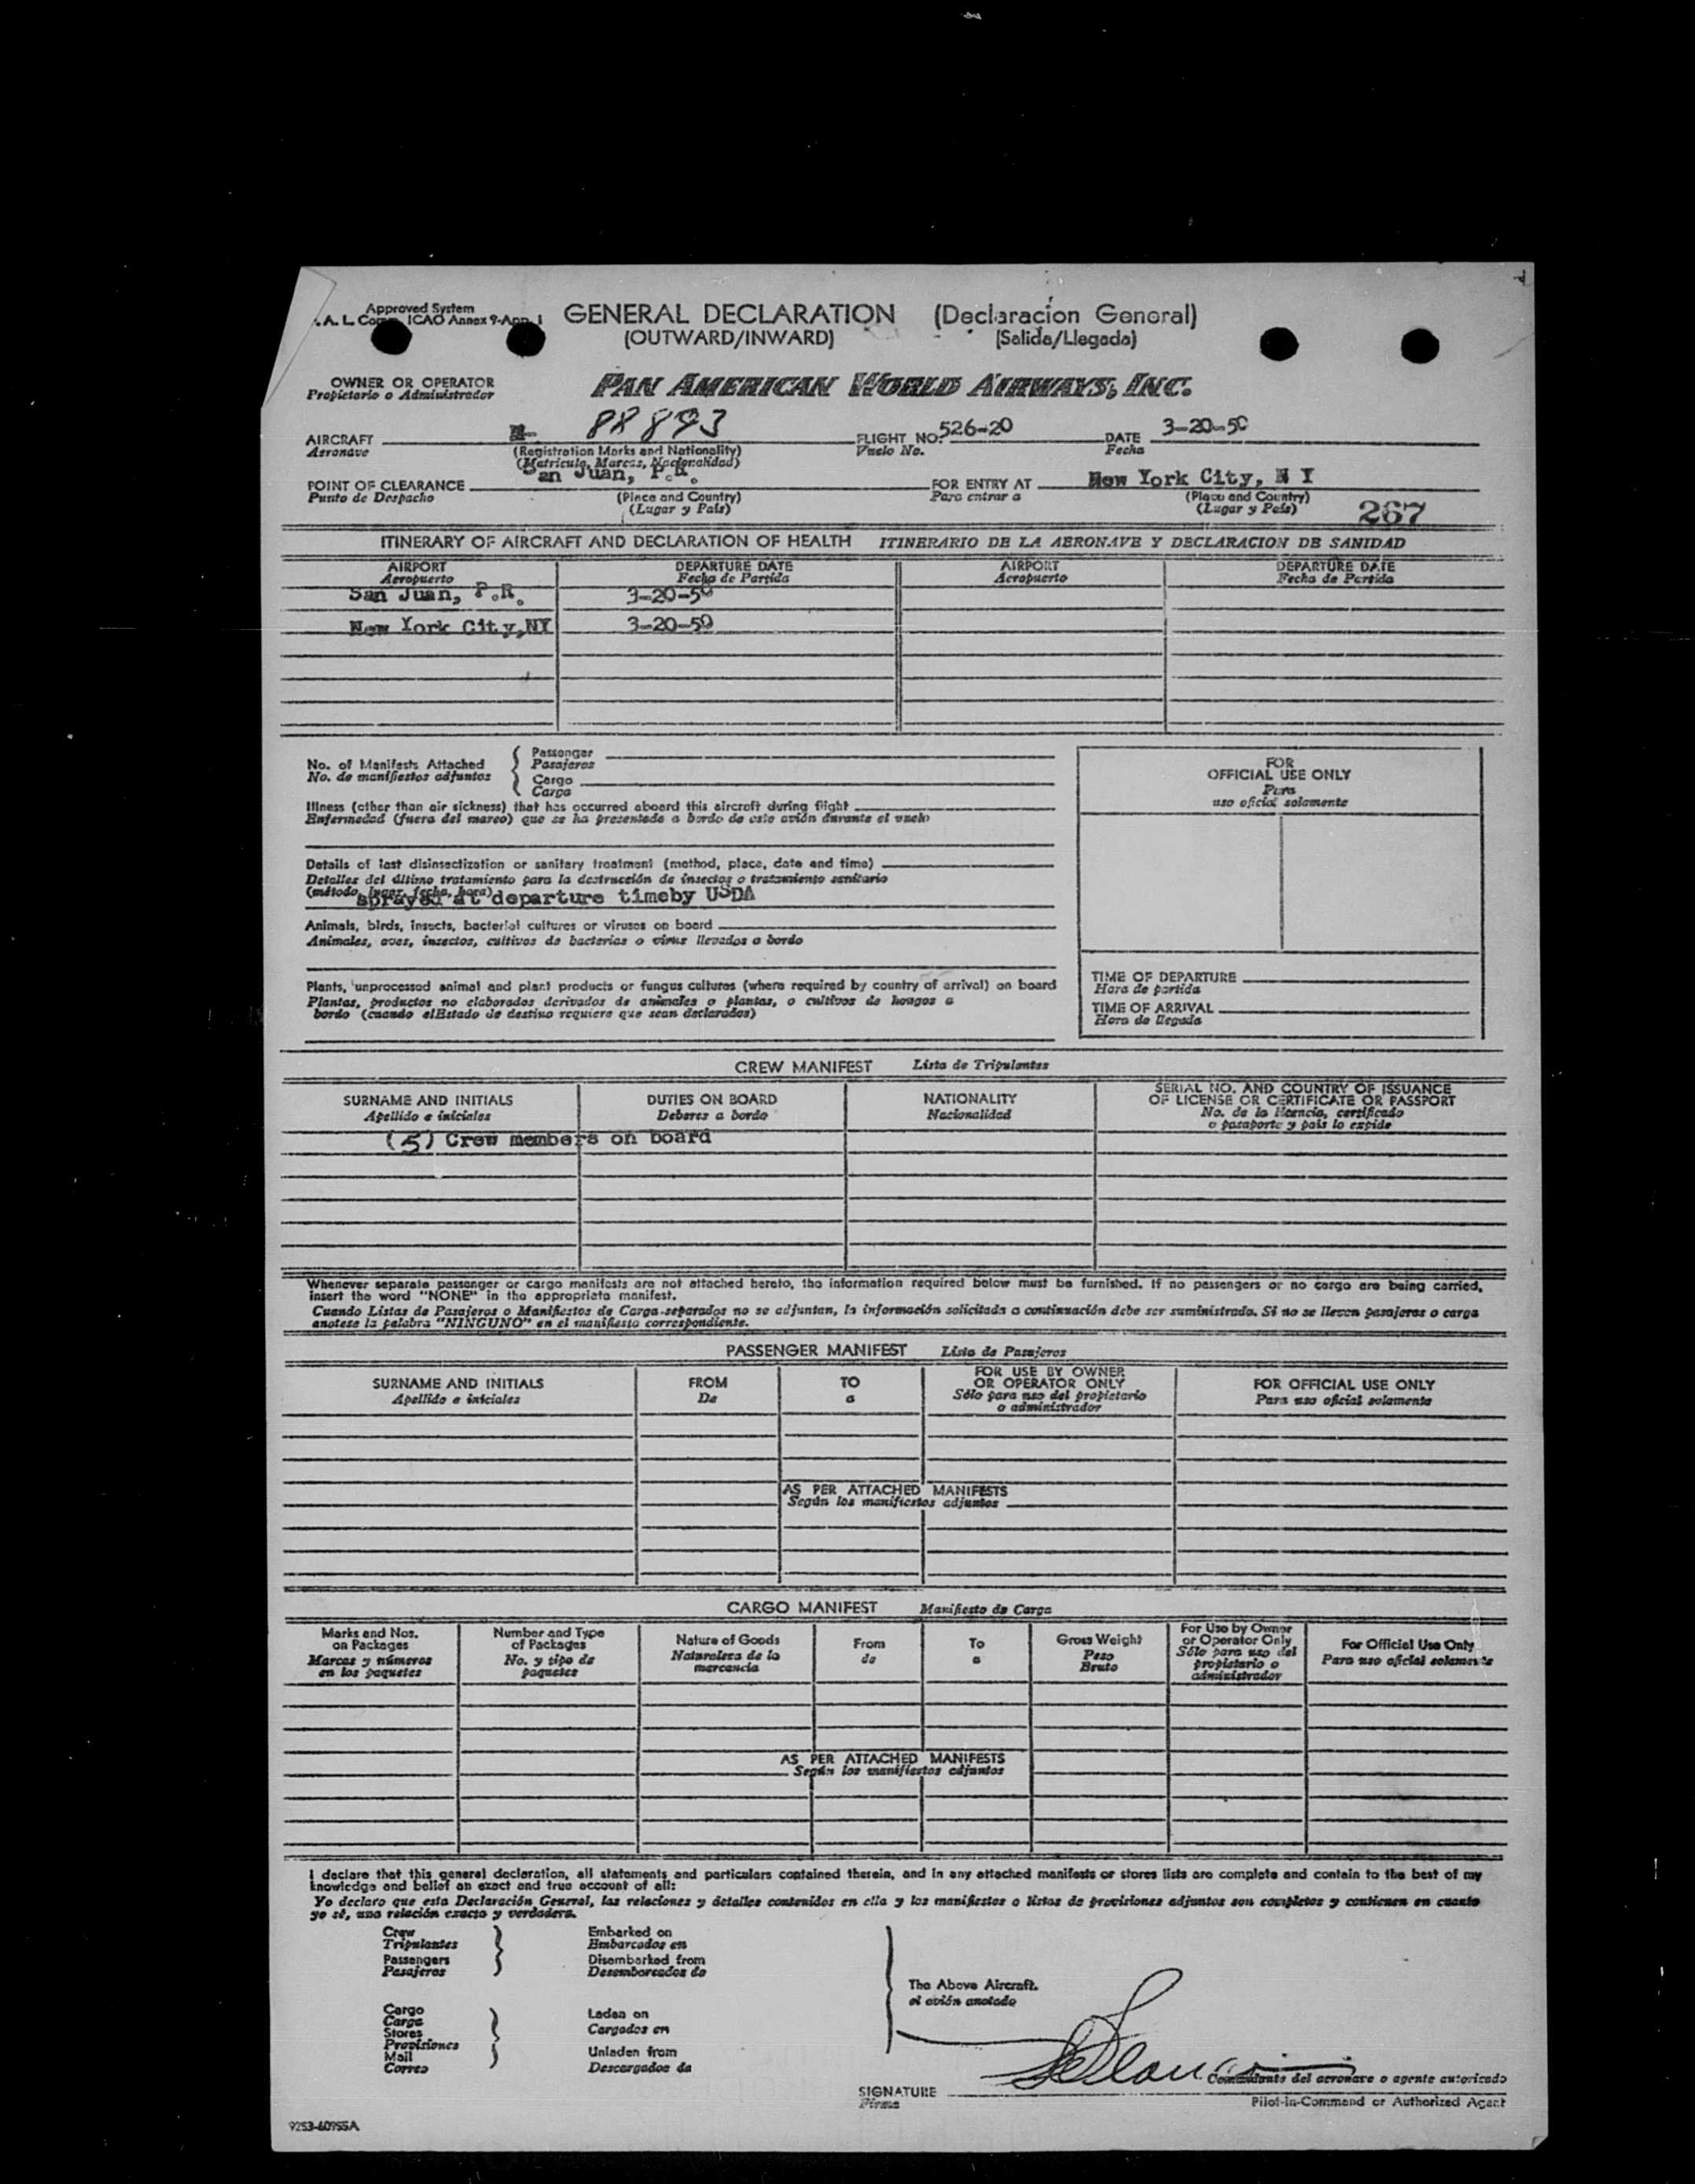 Approved System
.A. L. Comm. ICAO Annex 9-App. 1
GENERAL DECLARATION (Declaracion General)
(OUTWARD/INWARD) (Salida/Llegada)
OWNER OR OPERATOR
Propietario o Administrador
PAN AMERICAN WORLD AIRWAYS, INC.
AIRCRAFT N- 88893 FLIGHT NO. 526-20 DATE 3-20-50
Aeronave (Registration Marks and Nationality) Vuelo No. Fecha
(Matricula, Marcas, Nacionalidad)
San Juan, P.R.
POINT OF CLEARANCE FOR ENTRY AT New York City, N Y
Punto de Despacho (Place and Country) Para entrar a (Place and Country)
(Lugar y País) (Lugar y País) 267
ITINERARY OF AIRCRAFT AND DECLARATION OF HEALTH ITINERARIO DE LA AERONAVE Y DECLARACION DE SANIDAD
AIRPORT DEPARTURE DATE AIRPORT DEPARTURE DATE
Aeropuerto Fecha de Partida Aeropuerto Fecha de Partida
San Juan, P.R. 3-20-50
New York City,NY 3-20-50
No. of Manifests Attached Passenger
No. de manifiestos adjuntos Pasajeros
Cargo
Carga
FOR
OFFICIAL USE ONLY
Para
uso oficial solamente
Illness (other than air sickness) that has occurred aboard this aircraft during flight
Enfermedad (fuera del mareo) que se ha presentado a bordo de este avión durante el vuelo
Details of last disinsectization or sanitary treatment (method, place, date and time)
Detalles del último tratamiento para la destrucción de insectos o tratamiento sanitario
(método, lugar, fecha, hora)
sprayed at departure timeby USDA
Animals, birds, insects, bacterial cultures or viruses on board
Animales, aves, insectos, cultivos de bacterias o virus llevados a bordo
Plants, unprocessed animal and plant products or fungus cultures (where required by country of arrival) on board
Plantas, productos no elaborados derivados de animales o plantas, o cultivos de hongos a
bordo (cuando elEstado de destino requiere que sean declarados)
TIME OF DEPARTURE
Hora de partida
TIME OF ARRIVAL
Hora de llegada
CREW MANIFEST Lista de Tripulantes
SURNAME AND INITIALS DUTIES ON BOARD NATIONALITY SERIAL NO. AND COUNTRY OF ISSUANCE
OF LICENSE OR CERTIFICATE OR PASSPORT
Apellido e iniciales Deberes a bordo Nacionalidad No. de la licencia, certificado
o pasaporte y país lo expide
(5) Crew members on board
Whenever separate passenger or cargo manifests are not attached hereto, the information required below must be furnished. If no passengers or no cargo are being carried,
insert the word "NONE" in the appropriate manifest.
Cuando Listas de Pasajeros o Manifiestos de Carga separados no se adjuntan, la información solicitada a continuación debe ser suministrada. Si no se llevan pasajeros o carga
anotese la palabra "NINGUNO" en el manifiesto correspondiente.
PASSENGER MANIFEST Lista de Pasajeros
SURNAME AND INITIALS FROM TO FOR USE BY OWNER
OR OPERATOR ONLY FOR OFFICIAL USE ONLY
Apellido e iniciales De a Sólo para uso del propietario
o administrador Para uso oficial solamente
AS PER ATTACHED MANIFESTS
Según los manifiestos adjuntos
CARGO MANIFEST Manifiesto de Carga
Marks and Nos.
on Packages
Marcas y números
en los paquetes
Number and Type
of Packages
No. y tipo de
paquetes
Nature of Goods
Naturaleza de la
mercancia
From
de
To
a
Gross Weight
Peso
Bruto
For Use by Owner
or Operator Only
Sólo para uso del
propietario o
administrador
For Official Use Only
Para uso oficial solamente
AS PER ATTACHED MANIFESTS
Según los manifiestos adjuntos
I declare that this general declaration, all statements and particulars contained therein, and in any attached manifests or stores lists are complete and contain to the best of my
knowledge and belief an exact and true account of all:
Yo declaro que esta Declaración General, las relaciones y detalles contenidos en ella y los manifiestos o listas de provisiones adjuntos son completos y contienen en cuanto
yo sé, una relación exacta y verdadera.
Crew Embarked on
Tripulantes Embarcados en
Passengers Disembarked from
Pasajeros Desembarcados de
The Above Aircraft.
el avión anotado
Cargo Laden on
Carga Cargados en
Stores
Provisiones
Mail Unladen from
Correo Descargados de
Comandante del aeronave o agente autorizado
SIGNATURE
Firma
Pilot-in-Command or Authorized Agent
9253-60955A